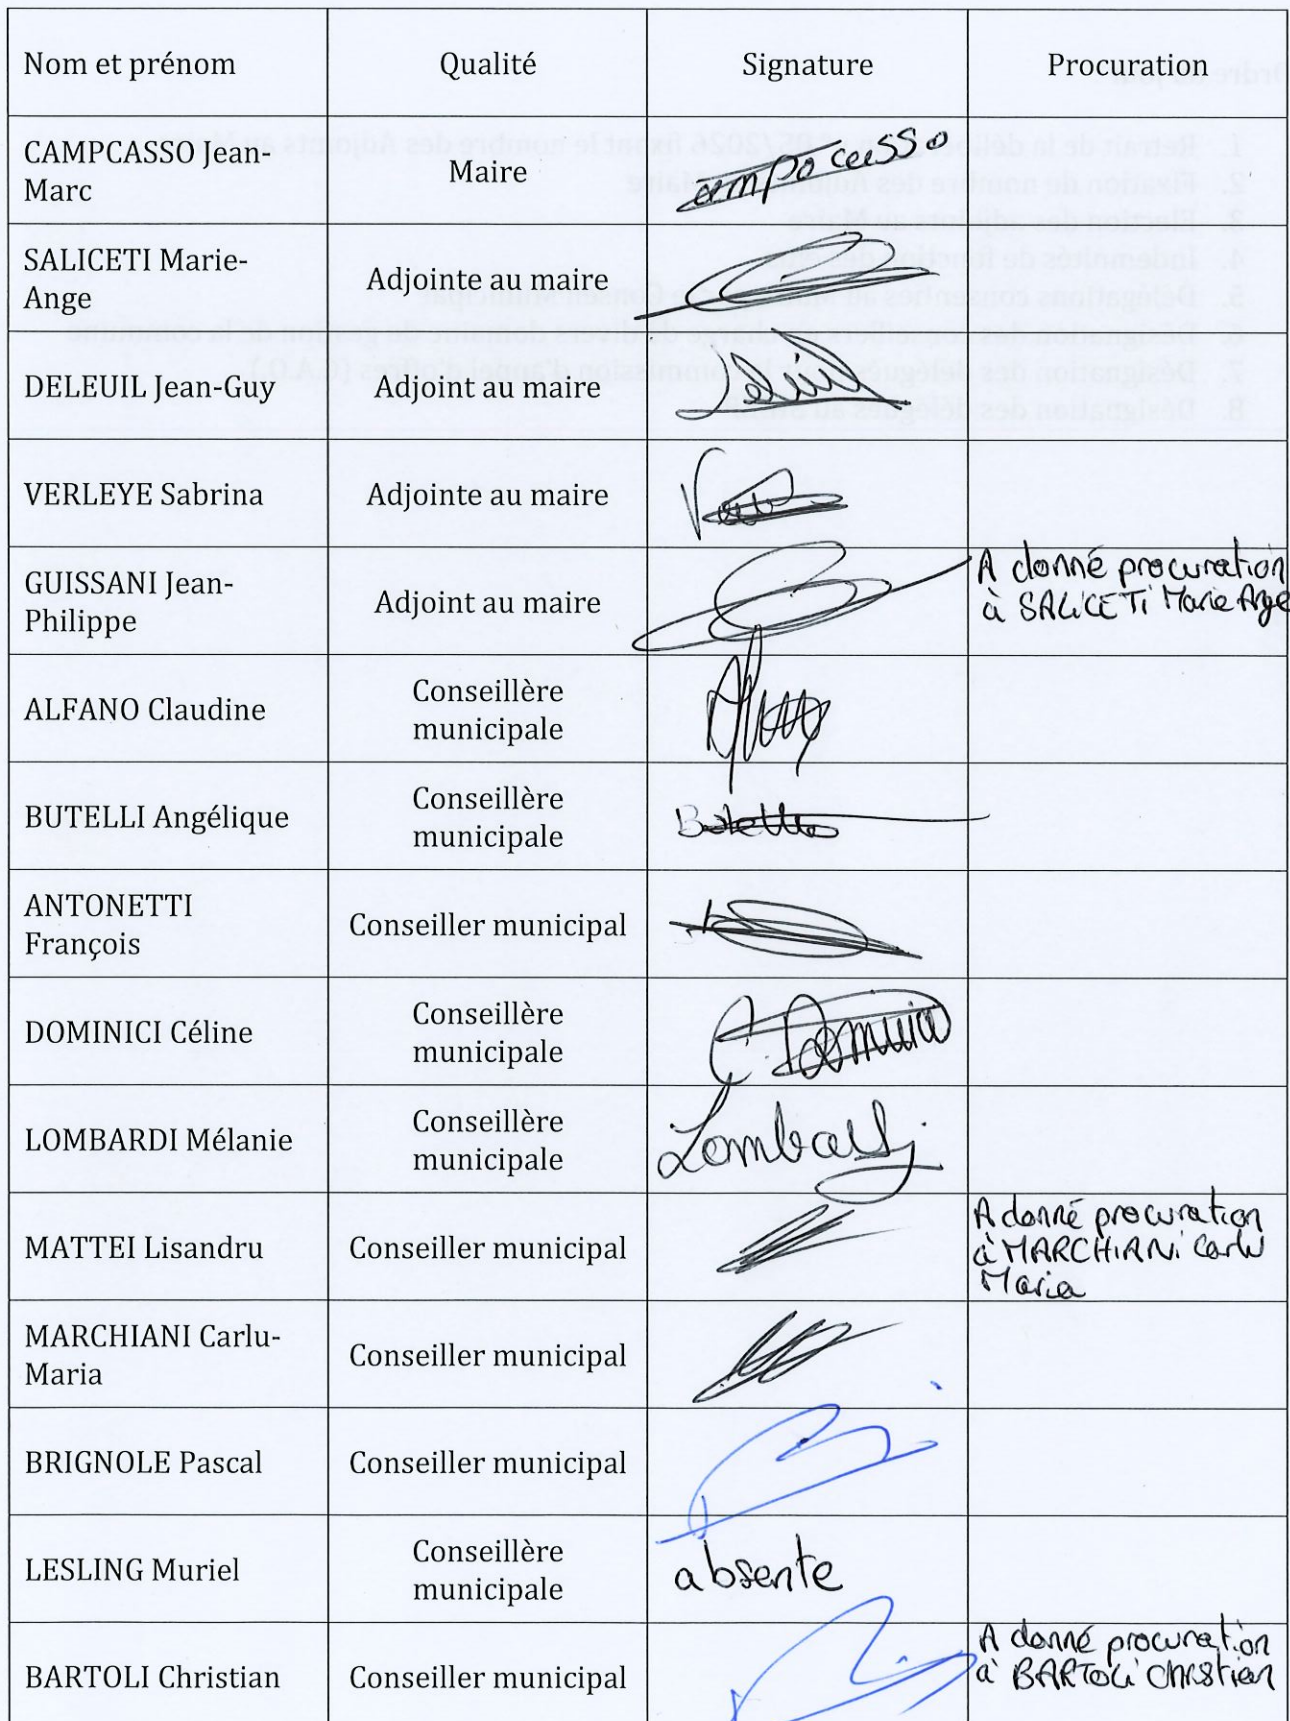 Nom et prénom Qualité Signature Procuration
CAMPCASSO Jean-
Marc
Maire
campocasso
SALICETI Marie-
Ange
Adjointe au maire
DELEUIL Jean-Guy Adjoint au maire
VERLEYE Sabrina Adjointe au maire
GUISSANI Jean-
Philippe
Adjoint au maire
A donné procuration
à SALICETI Marie Ange
ALFANO Claudine
Conseillère
municipale
BUTELLI Angélique
Conseillère
municipale
Butelli
ANTONETTI
François
Conseiller municipal
DOMINICI Céline
Conseillère
municipale
C. Dominici
LOMBARDI Mélanie
Conseillère
municipale
Lombardi
MATTEI Lisandru Conseiller municipal
A donné procuration
à MARCHIANI Carlu
Maria
MARCHIANI Carlu-
Maria
Conseiller municipal
BRIGNOLE Pascal Conseiller municipal
LESLING Muriel
Conseillère
municipale
absente
BARTOLI Christian Conseiller municipal
A donné procuration
à BARTOLI Christian